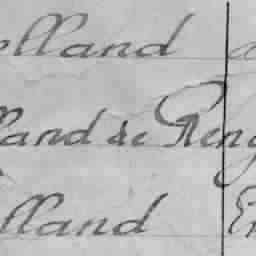 elland a
lland de Reng
elland En